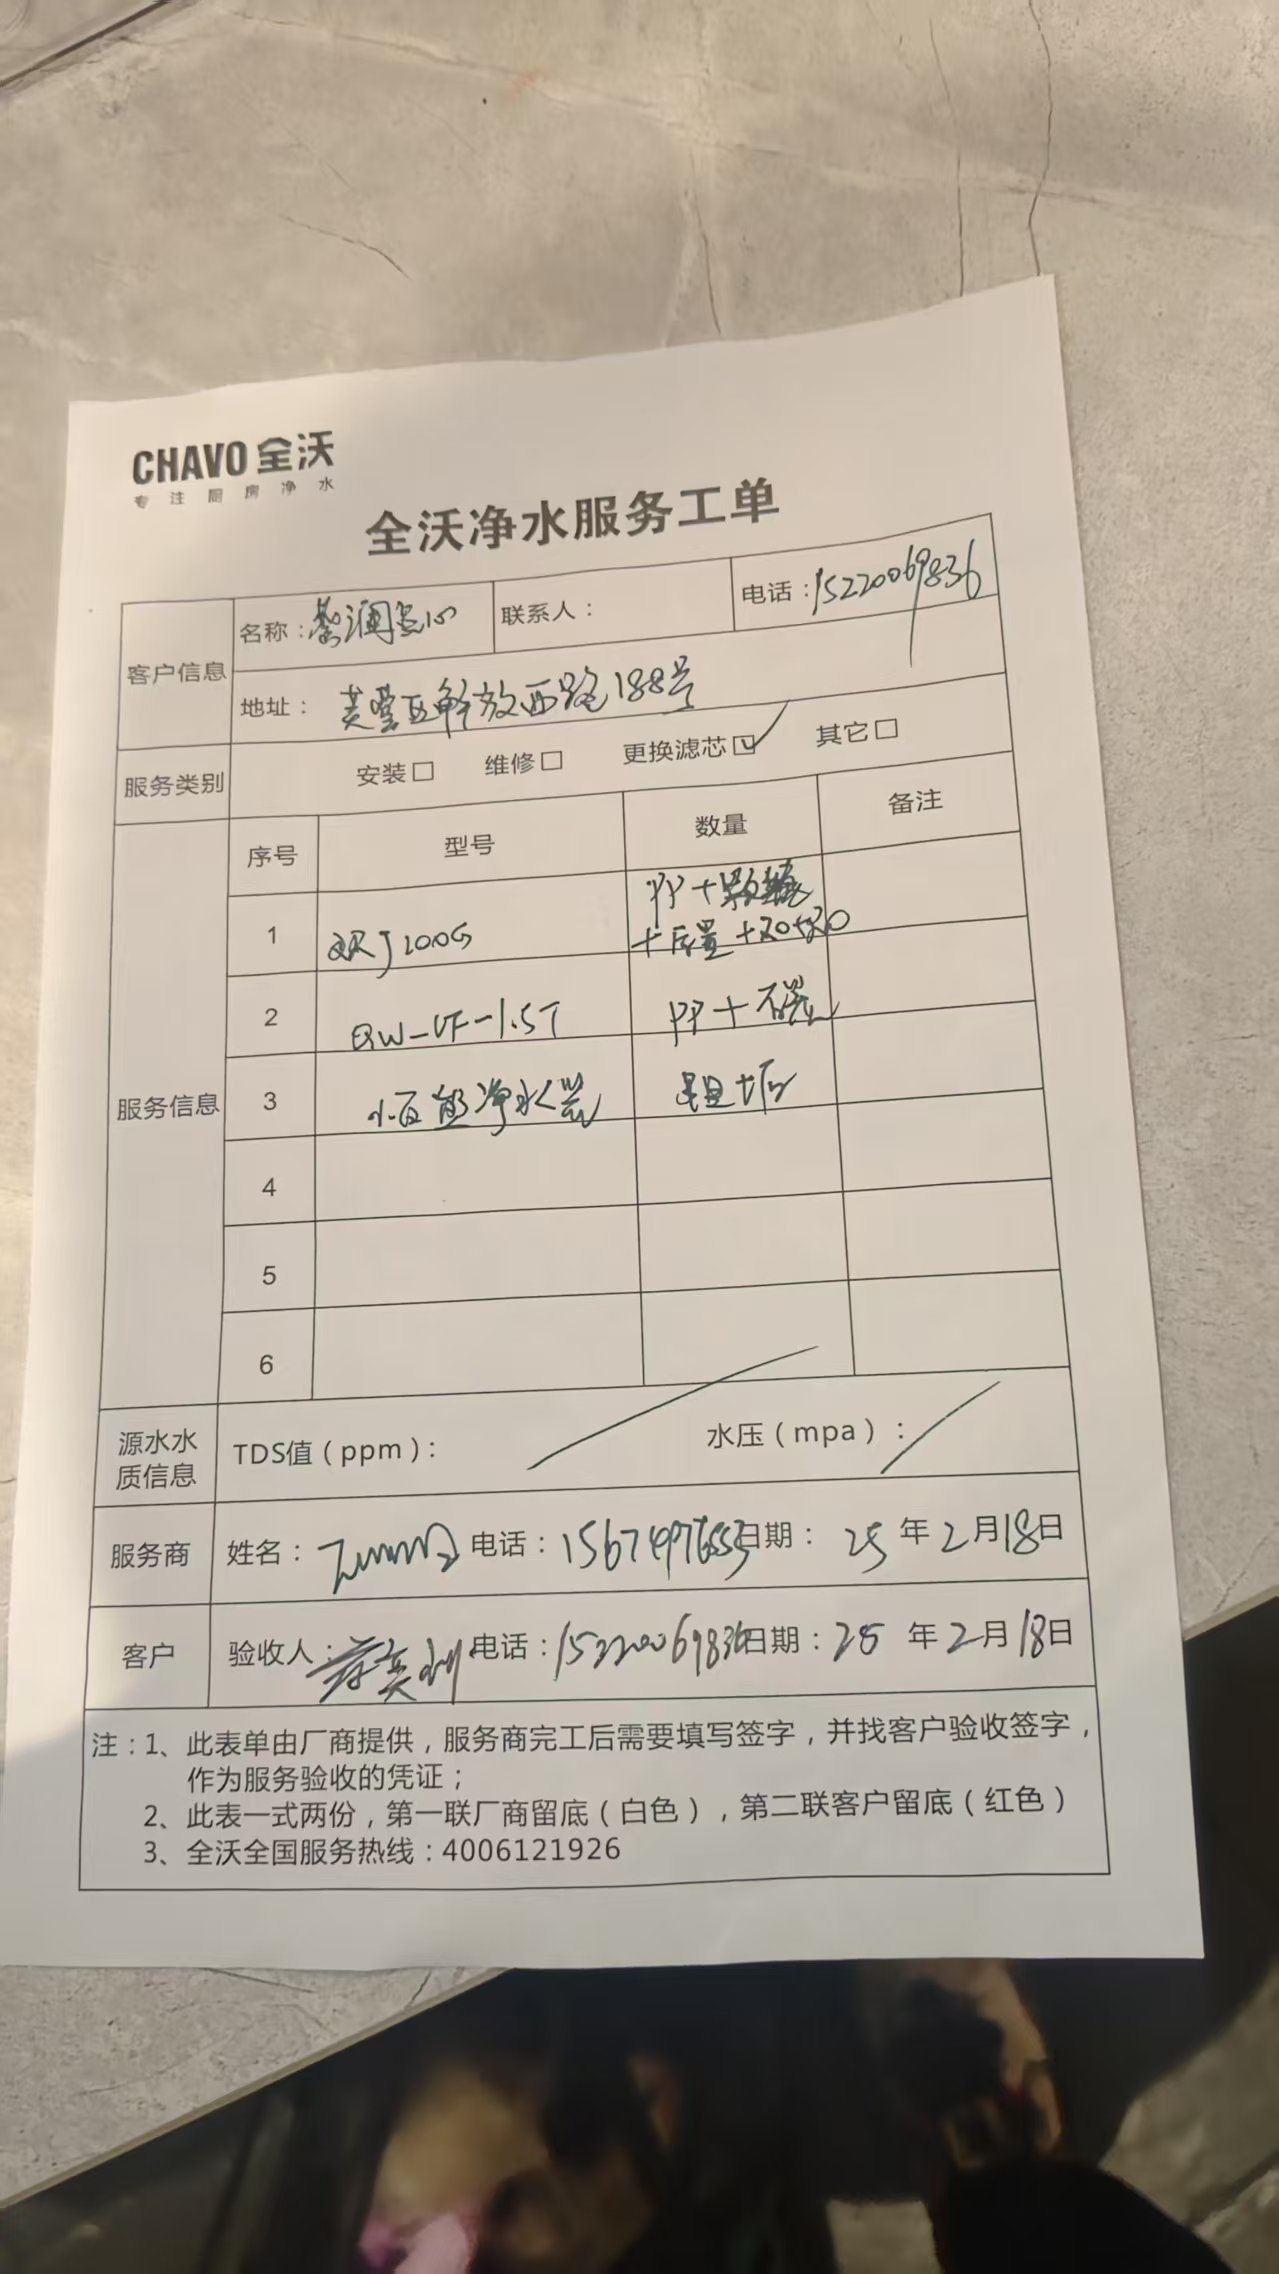 CHAVO 全沃
专注厨房净水
全沃净水服务工单
客户信息
名称：
联系人：
电话：15220069836
地址：芙蓉区解放西路188号
服务类别
安装□ 维修□ 更换滤芯☑ 其它□
服务信息
序号 型号 数量 备注
PP+颗粒
1
+后置+RO+RO
2 QW-UF-1.5T PP+
3 净水器
4
5
6
源水水质信息
TDS值（ppm）： / 水压（mpa）： /
服务商 姓名： 电话： 日期：25年2月18日
客户 验收人： 电话：15220069836 日期：25年2月18日
注：1、此表单由厂商提供，服务商完工后需要填写签字，并找客户验收签字，
作为服务验收的凭证；
2、此表一式两份，第一联厂商留底（白色），第二联客户留底（红色）
3、全沃全国服务热线：4006121926